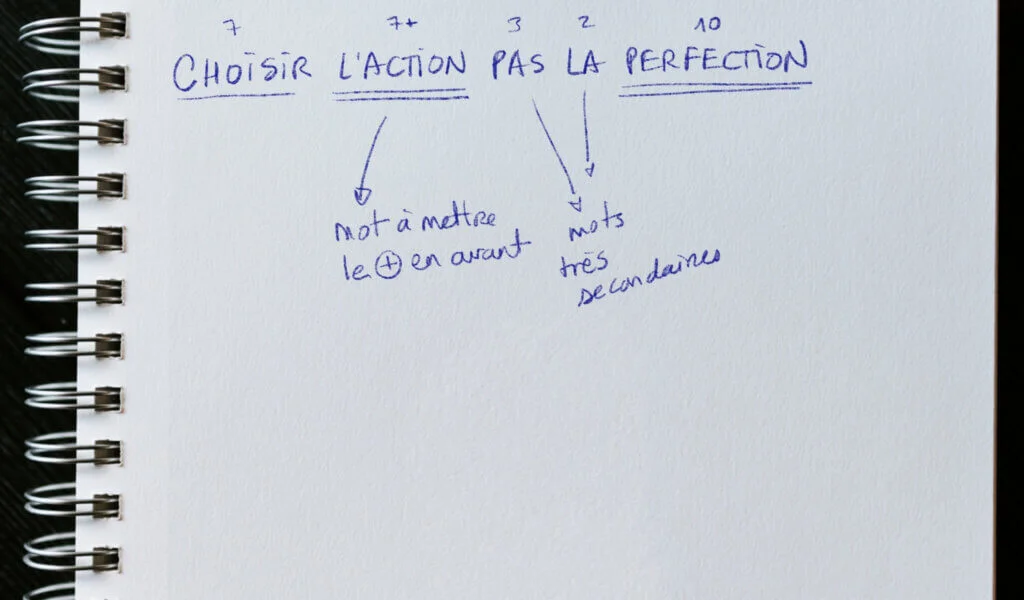 7 7+ 3 2 10
CHOISIR L'ACTION PAS LA PERFECTION
mot à mettre
le + en avant
mots
très
secondaires